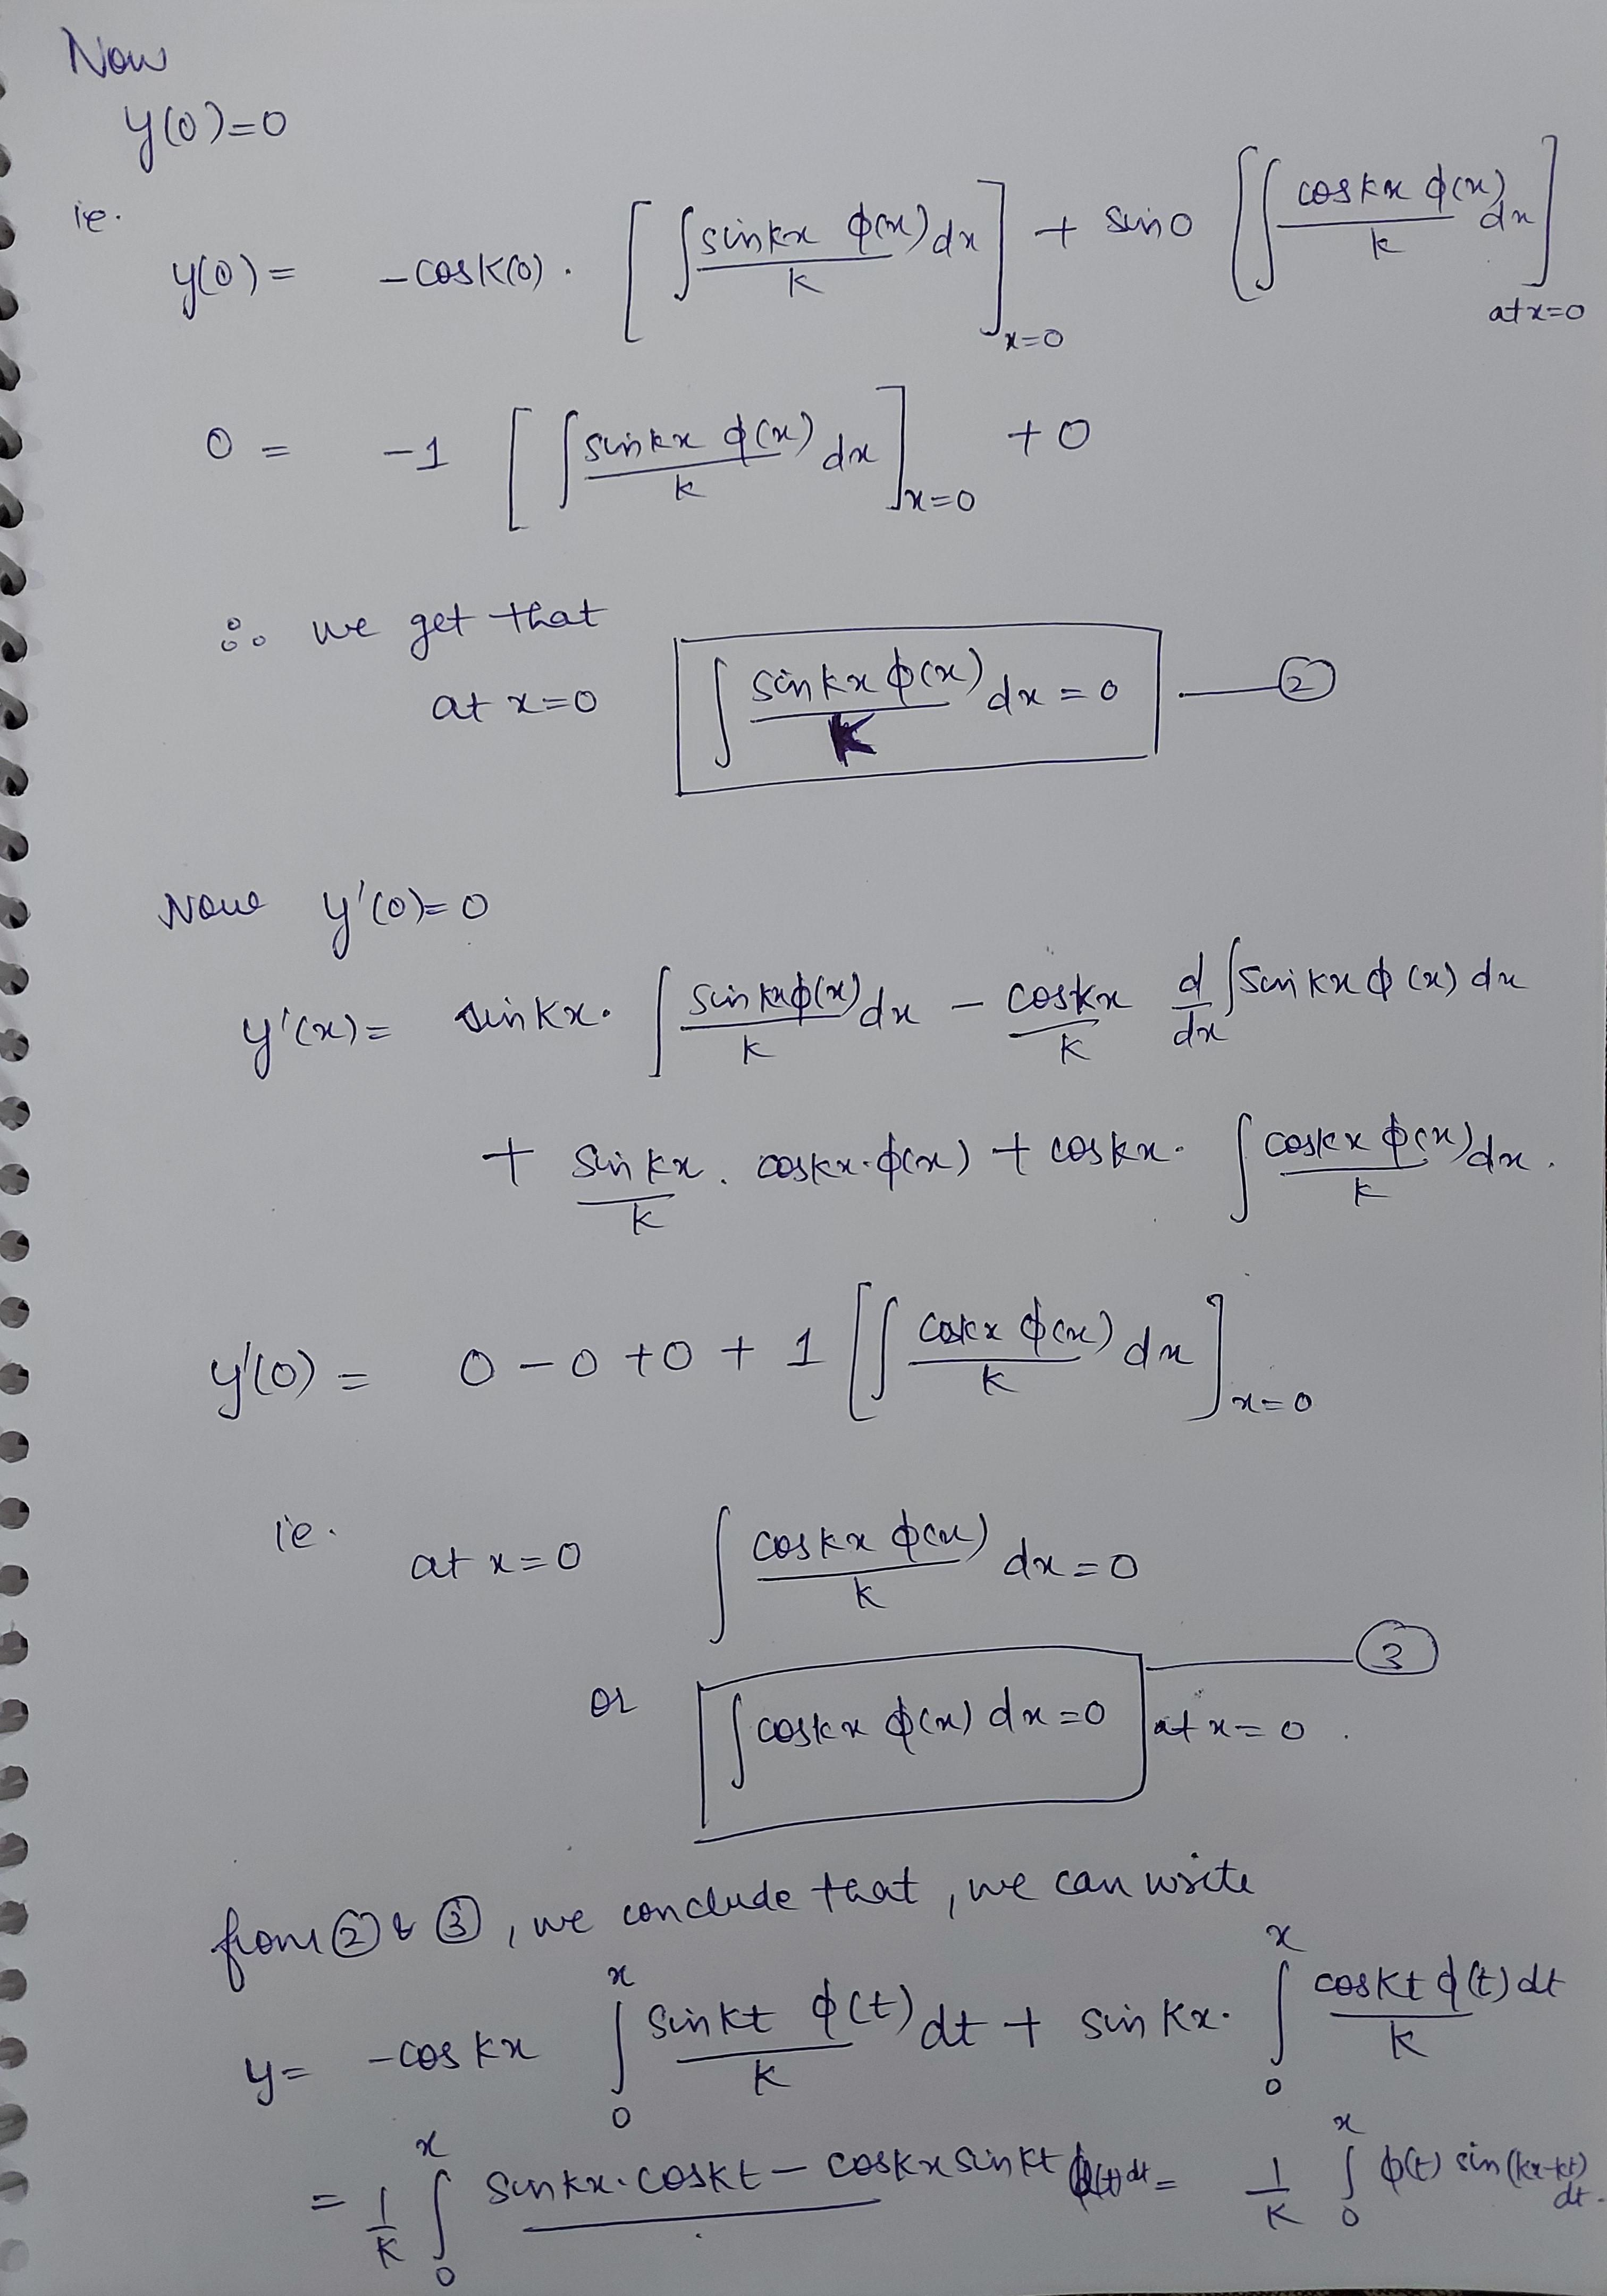 Now
y(0)=0
ie.
y(0) = -cosk(0) · [∫ sinkx φ(x)/k dx]x=0 + sin0 [∫ coskx φ(x)/k dx] at x=0
0 = -1 [∫ sinkx φ(x)/k dx]x=0 + 0
∴ we get that
at x=0 ∫ sinkx φ(x)/K dx = 0 — ②
Now y'(0)=0
y'(x) = sinkx. ∫ sinkxφ(x)/k dx - coskx/k d/dx ∫sinkx φ(x) dx
+ sinkx/k . coskx.φ(x) + coskx. ∫ coskx φ(x)/k dx.
y'(0) = 0 - 0 + 0 + 1 [∫ coskx φ(x)/k dx]x=0
ie. at x=0 ∫ coskx φ(x)/k dx = 0
or ∫coskx φ(x) dx = 0 at x=0. — ③
from ② & ③, we conclude that, we can write
y = -coskx ∫₀ˣ sinkt φ(t)/k dt + sinkx. ∫₀ˣ coskt φ(t) dt/k
= 1/k ∫₀ˣ sinkx.coskt - coskx sinkt φ(t)dt = 1/k ∫₀ˣ φ(t) sin(kx-kt) dt.